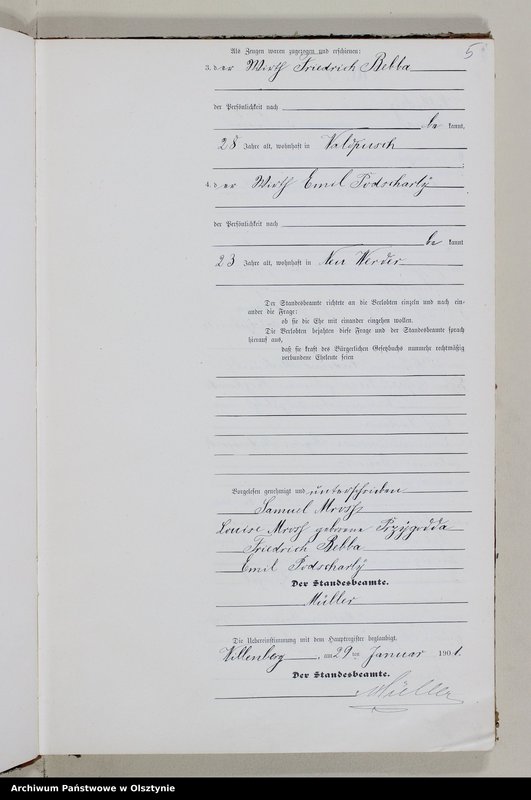 5
Als Zeugen waren zugezogen und erschienen:
3. der Wirth Friedrich Bebba
der Persönlichkeit nach
be kannt,
28 Jahre alt, wohnhaft in Waldpusch
4. der Wirth Emil Podscharly
der Persönlichkeit nach
be kannt
23 Jahre alt, wohnhaft in Neu Werder
Der Standesbeamte richtete an die Verlobten einzeln und nach ein-
ander die Frage:
ob sie die Ehe mit einander eingehen wollen.
Die Verlobten bejahten diese Frage und der Standesbeamte sprach
hierauf aus,
daß sie kraft des Bürgerlichen Gesetzbuchs nunmehr rechtmäßig
verbundene Eheleute seien
Vorgelesen genehmigt und unterschrieben
Samuel Mrosß
Louise Mrosß geborene Przygodda
Friedrich Bebba
Emil Podscharly
Der Standesbeamte.
Müller
Die Uebereinstimmung mit dem Hauptregister beglaubigt.
Willenberg, am 29 ten Januar 1901.
Der Standesbeamte.
Müller
Archiwum Państwowe w Olsztynie